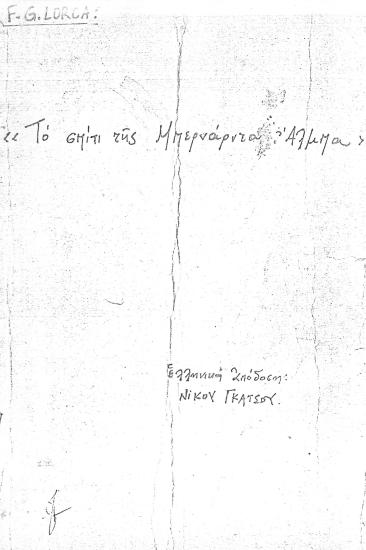 F. G. LORCA:
«Τό σπίτι τῆς Μπερνάρντα Ἄλμπα»
Ἑλληνική Ἀπόδοση:
ΝΙΚΟΥ ΓΚΑΤΣΟΥ.